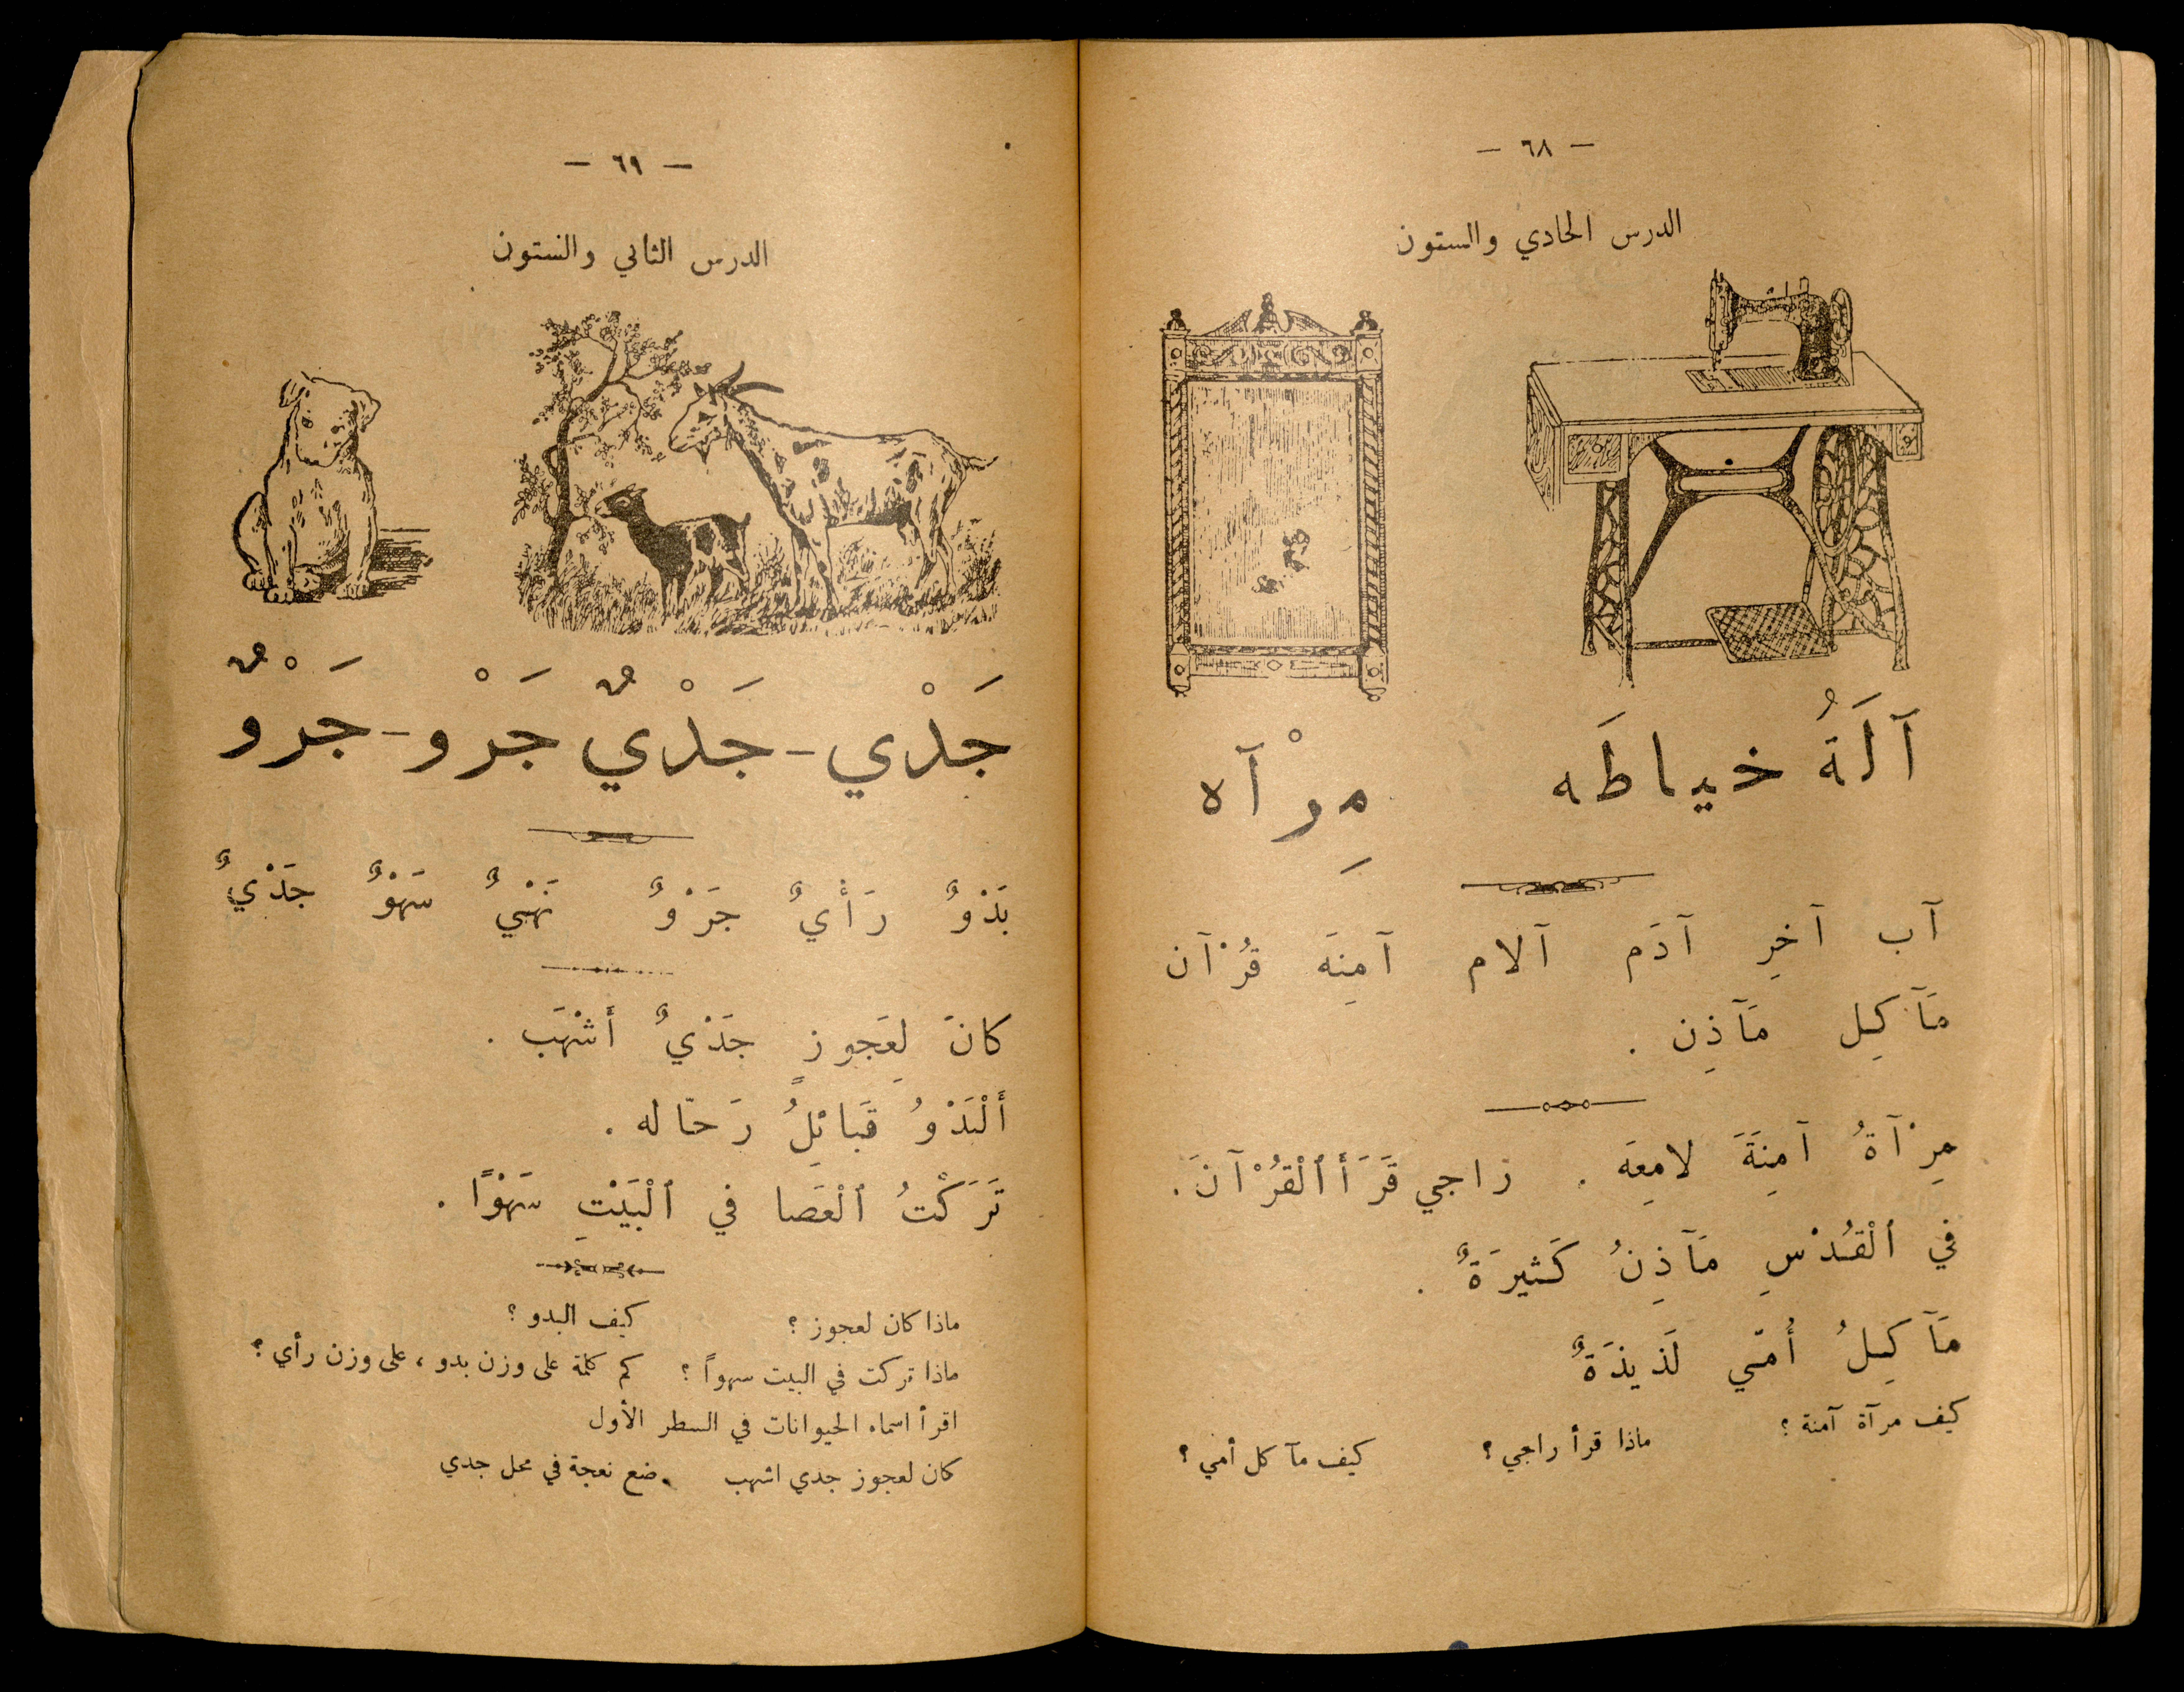 — ٦٨ —
الدرس الحادي والستون
آلَةُ خياطَه مِرْآه
آب آخِر آدَم آلام آمِنَه قُرْآن
مَآكِل مَآذِن .
مِرْآةُ آمِنَةَ لامِعَه . راجي قَرَأَ ٱلْقُرْآنَ .
في ٱلْقُدْسِ مَآذِنُ كَثيرَةٌ .
مَآكِلُ أُمّي لَذيذَةٌ
كيف مرآة آمنة ؟ ماذا قرأ راجي ؟ كيف مآكل أمي ؟
— ٦٩ —
الدرس الثاني والستون
جَدْي - جَدْيٌ جَرْو - جَرْوٌ
بَدْوٌ رَأْيٌ جَرْوٌ نَهْيٌ سَهْوٌ جَدْيٌ
كانَ لِعَجوزٍ جَدْيٌ أَشْهَب .
أَلْبَدْوُ قَبائِلُ رَحّاله .
تَرَكْتُ ٱلْعَصا في ٱلْبَيْتِ سَهْوًا .
ماذا كان لعجوز ؟ كيف البدو ؟
ماذا تركت في البيت سهواً ؟ كم كلمة على وزن بدو ، على وزن رأي ؟
اقرأ اسماء الحيوانات في السطر الأول
كان لعجوز جدي اشهب . ضع نعجة في محل جدي